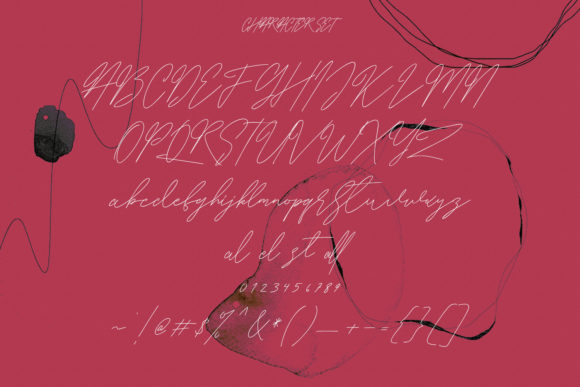 CHARACTER SET
ABCDEFGHIJKLMN
OPQRSTUVWXYZ
abcdefghijklmnopqrstuvwxyz
al el st all
0123456789
~'!@#$%^&*()_+-={}[]